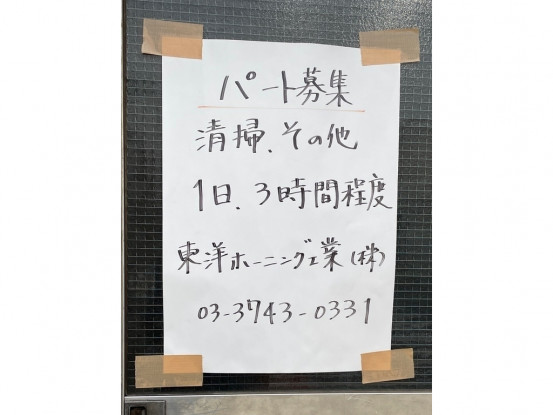 パート募集
清掃、その他
1日、3時間程度
東洋ホーニング工業(株)
03-3743-0331